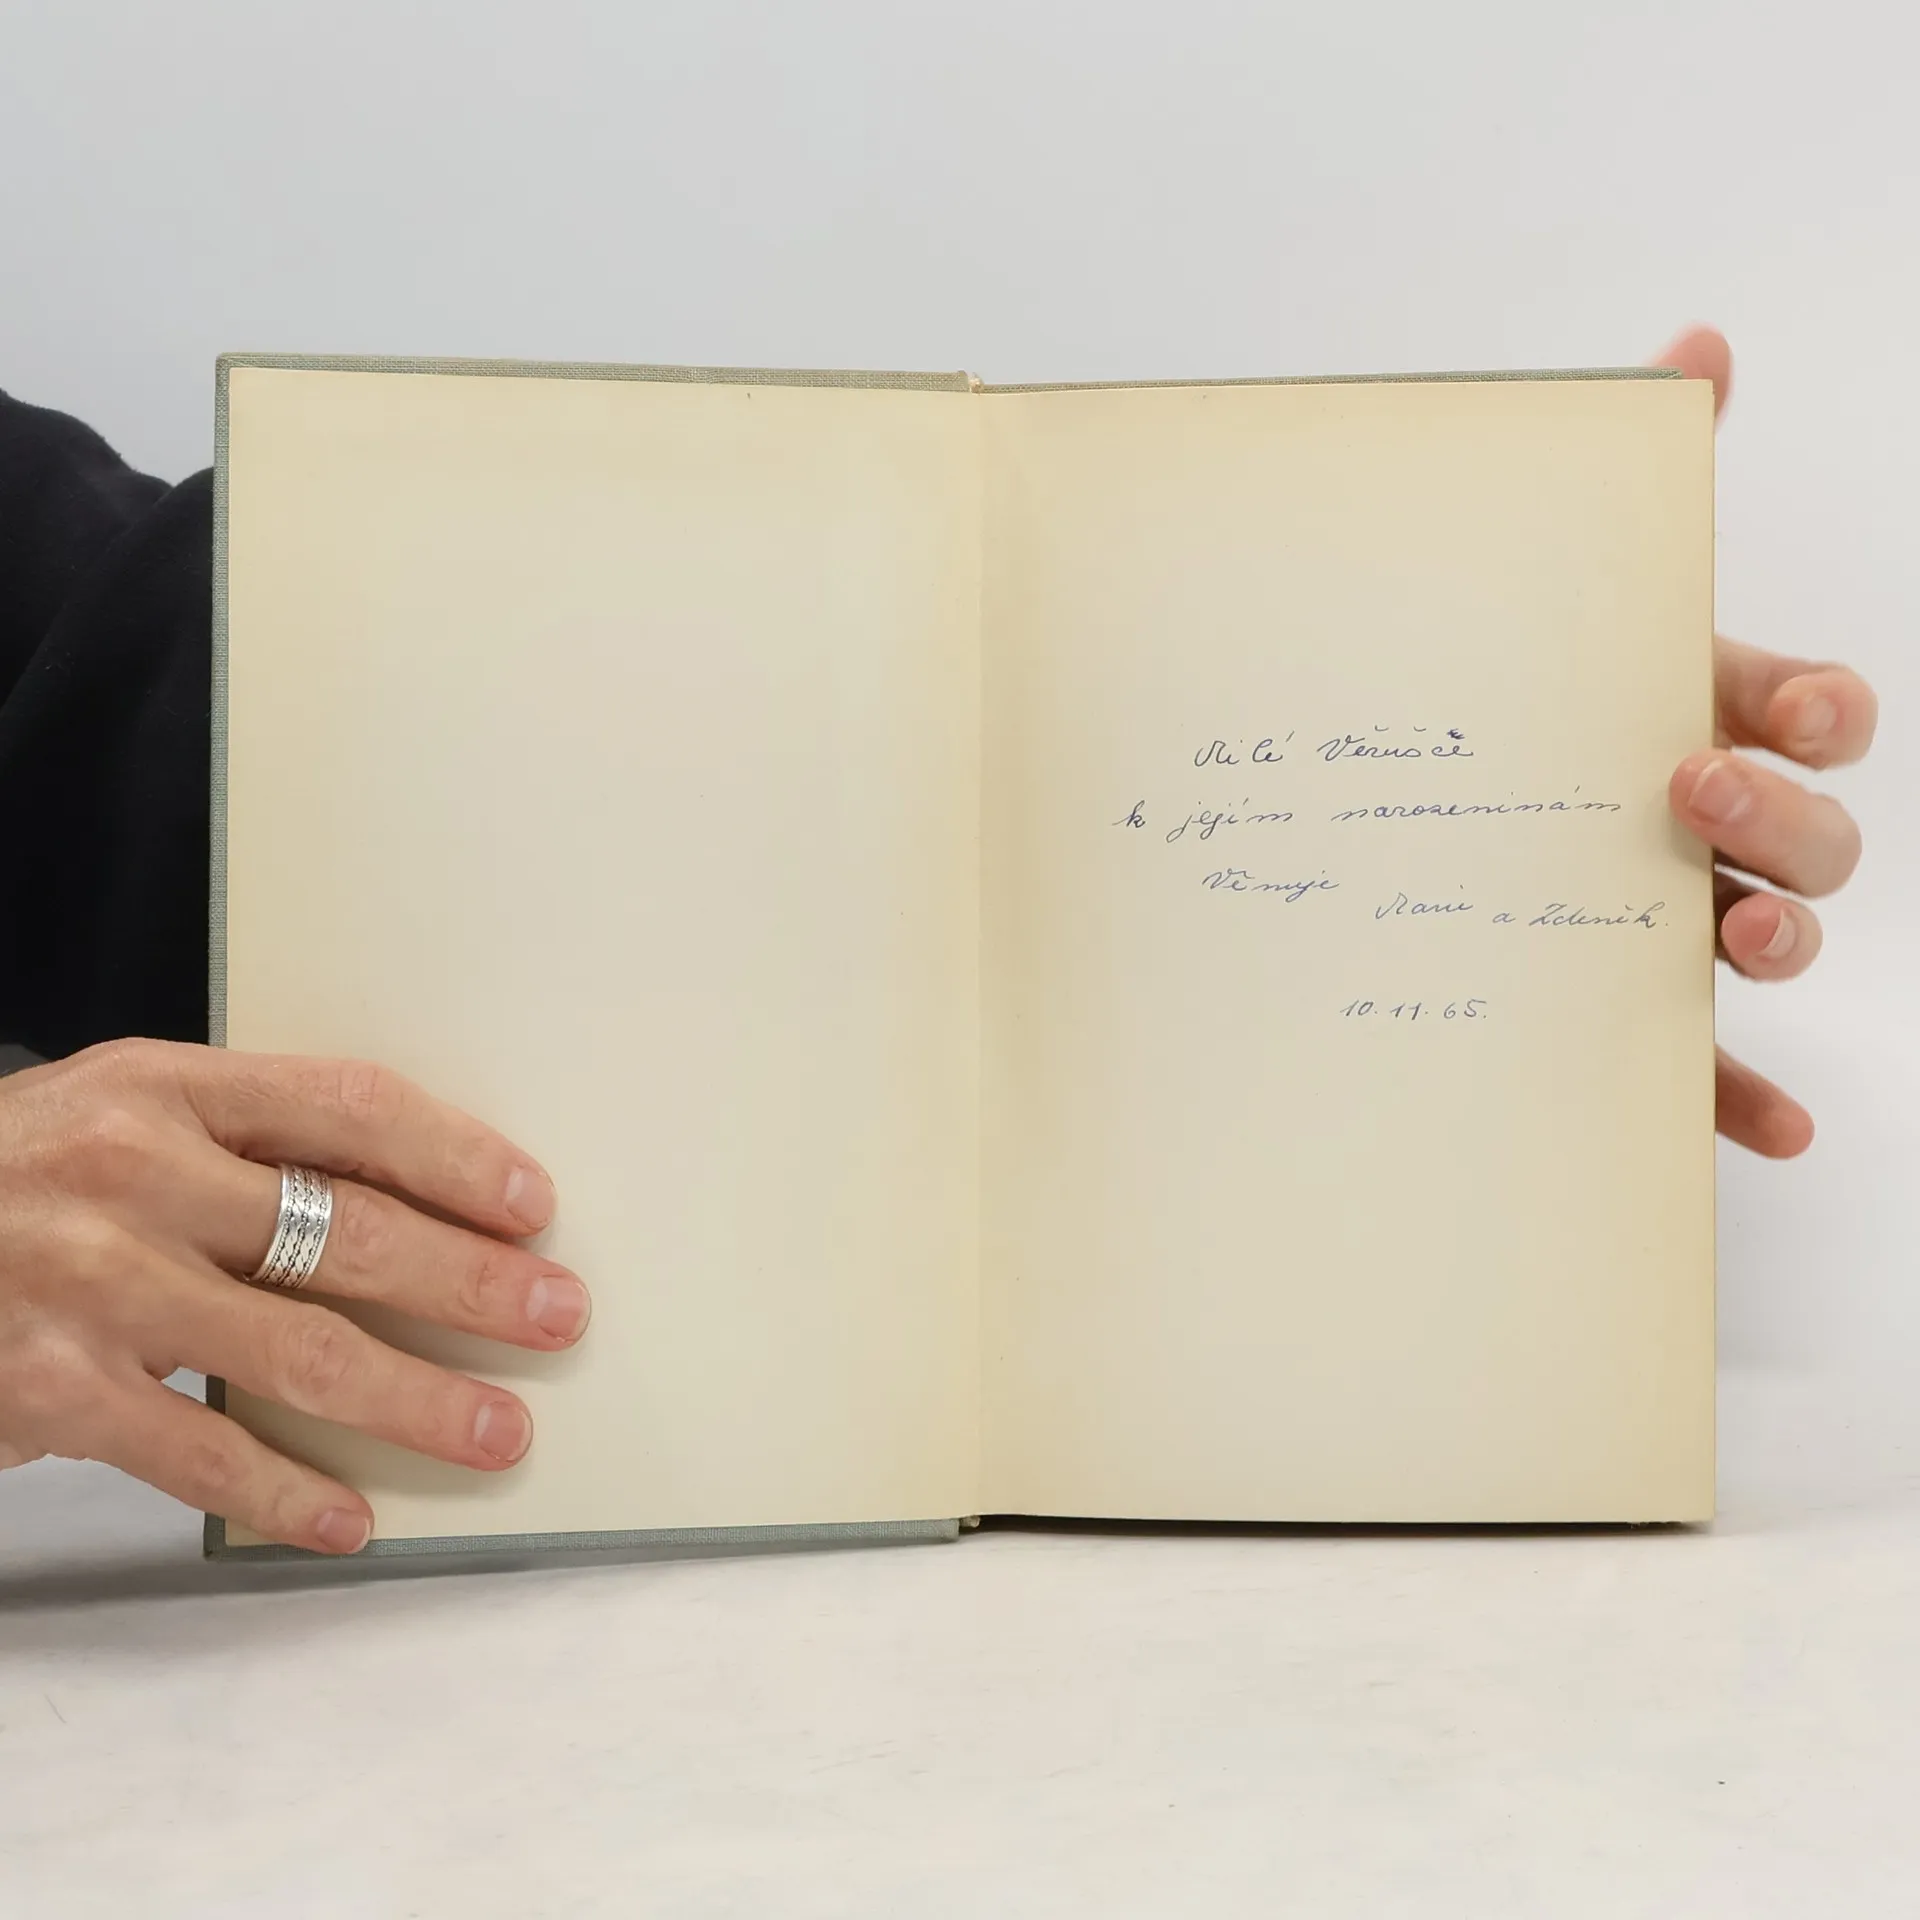 Milé Věrušce
k jejím narozeninám
Věnuje
Marie a Zdeněk.
10. 11. 65.